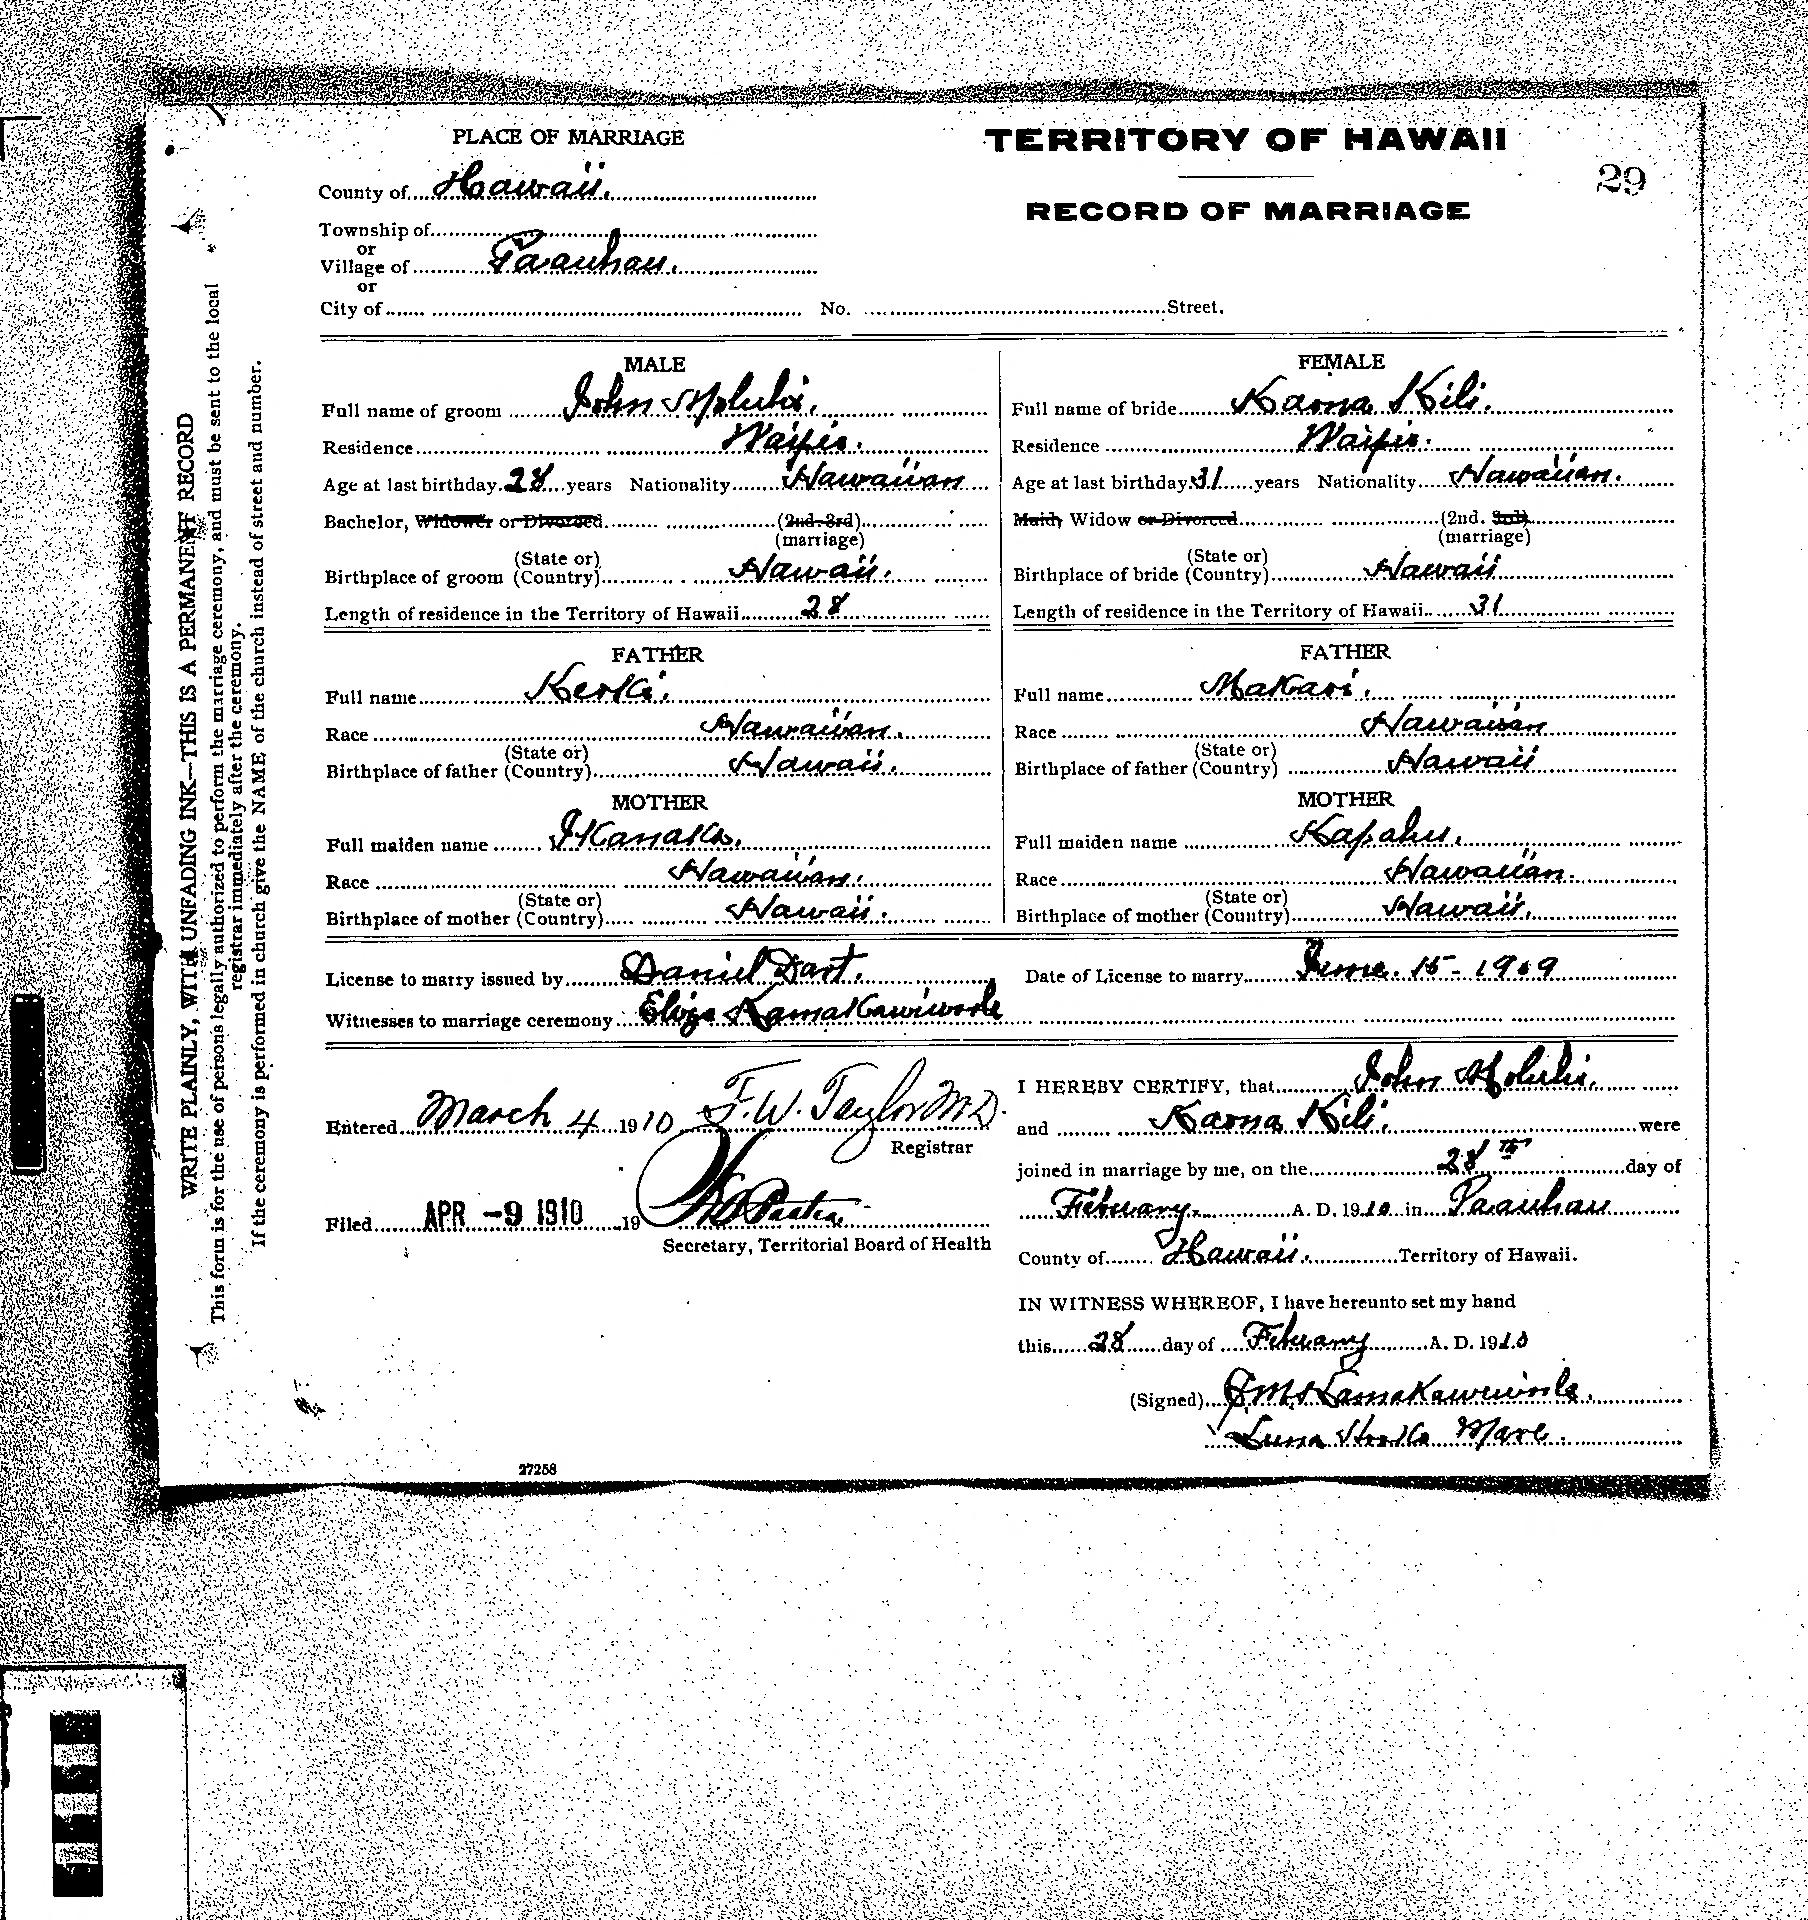 PLACE OF MARRIAGE
TERRITORY OF HAWAII
29
County of Hawaii.
RECORD OF MARRIAGE
Township of
or
Village of Paauhau.
or
City of No. Street.
MALE
Full name of groom John Moluhi.
Residence Waipio.
Age at last birthday 28 years Nationality Hawaiian
Bachelor, Widower or Divorced (2nd. 3rd)
(marriage)
(State or)
Birthplace of groom (Country) Hawaii.
Length of residence in the Territory of Hawaii 28
FATHER
Full name
Race Hawaiian.
(State or)
Birthplace of father (Country) Hawaii.
MOTHER
Full maiden name
Race Hawaiian.
(State or)
Birthplace of mother (Country) Hawaii.
FEMALE
Full name of bride Kaona Kili.
Residence Waipio.
Age at last birthday 31 years Nationality Hawaiian.
Maid, Widow or Divorced (2nd. 3rd)
(marriage)
(State or)
Birthplace of bride (Country) Hawaii
Length of residence in the Territory of Hawaii 31
FATHER
Full name Makari.
Race Hawaiian
(State or)
Birthplace of father (Country) Hawaii
MOTHER
Full maiden name Kapahu.
Race Hawaiian.
(State or)
Birthplace of mother (Country) Hawaii.
License to marry issued by Daniel Dart. Date of License to marry June. 15 - 1909
Witnesses to marriage ceremony Eliza Kamakawiwoole
Entered March 4 1910 F. W. Taylor M.D.
Registrar
Filed APR -9 1910 19
Secretary, Territorial Board of Health
I HEREBY CERTIFY, that John Moluhi.
and Kaona Kili. were
joined in marriage by me, on the 28th day of
February. A. D. 1910 in Paauhau
County of Hawaii. Territory of Hawaii.
IN WITNESS WHEREOF, I have hereunto set my hand
this 28 day of February A. D. 1910
(Signed) Kamakawiwoole.
Luna Hooko Mare.
27258
WRITE PLAINLY, WITH UNFADING INK—THIS IS A PERMANENT RECORD
This form is for the use of persons legally authorized to perform the marriage ceremony, and must be sent to the local
registrar immediately after the ceremony.
If the ceremony is performed in church give the NAME of the church instead of street and number.